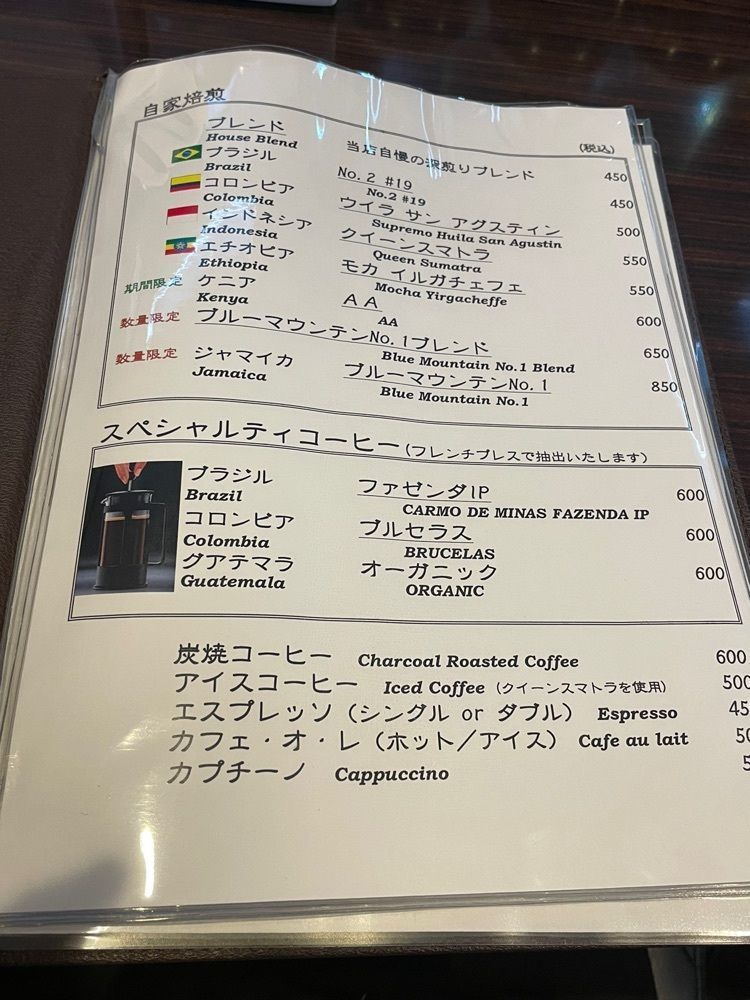 自家焙煎
(税込)
ブレンド 当店自慢の深煎りブレンド 450
House Blend
ブラジル No.2 #19 450
Brazil No.2 #19
コロンビア ウイラ サン アグスティン 500
Colombia Supremo Huila San Agustin
インドネシア クイーンスマトラ 550
Indonesia Queen Sumatra
エチオピア モカ イルガチェフェ 550
Ethiopia Mocha Yirgacheffe
期間限定 ケニア AA 600
Kenya AA
数量限定 ブルーマウンテンNo.1ブレンド 650
Blue Mountain No.1 Blend
数量限定 ジャマイカ ブルーマウンテンNo.1 850
Jamaica Blue Mountain No.1
スペシャルティコーヒー(フレンチプレスで抽出いたします)
ブラジル ファゼンダIP 600
Brazil CARMO DE MINAS FAZENDA IP
コロンビア ブルセラス 600
Colombia BRUCELAS
グアテマラ オーガニック 600
Guatemala ORGANIC
炭焼コーヒー Charcoal Roasted Coffee 600
アイスコーヒー Iced Coffee (クイーンスマトラを使用) 500
エスプレッソ (シングル or ダブル) Espresso 45
カフェ・オ・レ (ホット/アイス) Cafe au lait
カプチーノ Cappuccino